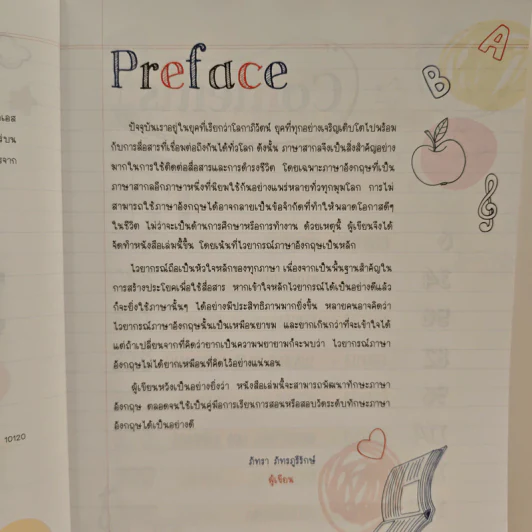 Preface
A
B
เอส
ปัจจุบันเราอยู่ในยุคที่เรียกว่าโลกาภิวัตน์ ยุคที่ทุกอย่างเจริญเติบโตไปพร้อม
กับการสื่อสารที่เชื่อมต่อถึงกันได้ทั่วโลก ดังนั้น ภาษาสากลจึงเป็นสิ่งสำคัญอย่าง
มากในการใช้ติดต่อสื่อสารและการดำรงชีวิต โดยเฉพาะภาษาอังกฤษที่เป็น
ภาษาสากลอีกภาษาหนึ่งที่นิยมใช้กันอย่างแพร่หลายทั่วทุกมุมโลก การไม่
สามารถใช้ภาษาอังกฤษได้อาจกลายเป็นข้อจำกัดที่ทำให้พลาดโอกาสดีๆ
ในชีวิต ไม่ว่าจะเป็นด้านการศึกษาหรือการทำงาน ด้วยเหตุนี้ ผู้เขียนจึงได้
จัดทำหนังสือเล่มนี้ขึ้น โดยเน้นที่ไวยากรณ์ภาษาอังกฤษเป็นหลัก
ไวยากรณ์ถือเป็นหัวใจหลักของทุกภาษา เนื่องจากเป็นพื้นฐานสำคัญใน
การสร้างประโยคเพื่อใช้สื่อสาร หากเข้าใจหลักไวยากรณ์ได้เป็นอย่างดีแล้ว
ก็จะยิ่งใช้ภาษานั้นๆ ได้อย่างมีประสิทธิภาพมากยิ่งขึ้น หลายคนอาจคิดว่า
ไวยากรณ์ภาษาอังกฤษนั้นเป็นเหมือนยาขม และยากเกินกว่าที่จะเข้าใจได้
แต่ถ้าเปลี่ยนจากที่คิดว่ายากเป็นความพยายามก็จะพบว่า ไวยากรณ์ภาษา
อังกฤษไม่ได้ยากเหมือนที่คิดไว้อย่างแน่นอน
ผู้เขียนหวังเป็นอย่างยิ่งว่า หนังสือเล่มนี้จะสามารถพัฒนาทักษะภาษา
อังกฤษ ตลอดจนใช้เป็นคู่มือการเรียนการสอนหรือสอบวัดระดับทักษะภาษา
อังกฤษได้เป็นอย่างดี
ภัทรา ภัทรภูริรักษ์
ผู้เขียน
10120